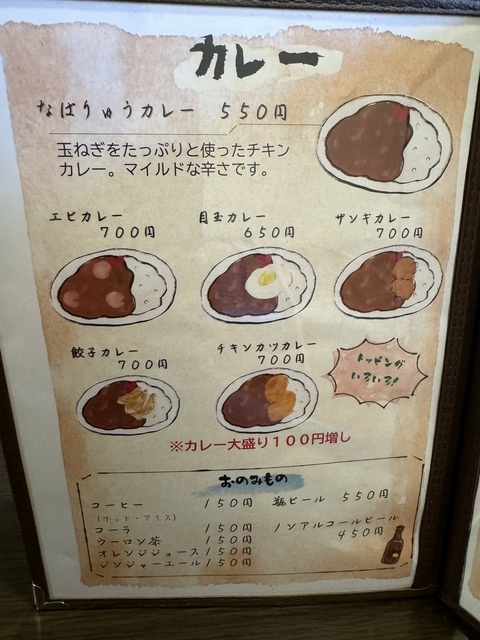 カレー
なはりゅうカレー 550円
玉ねぎをたっぷりと使ったチキン
カレー。マイルドな辛さです。
エビカレー 目玉カレー ザンギカレー
700円 650円 700円
餃子カレー チキンカツカレー
700円 700円
トッピングが
いろいろ!
※カレー大盛り100円増し
おのみもの
コーヒー 150円 瓶ビール 550円
(ホット・アイス)
コーラ 150円 ノンアルコールビール
ウーロン茶 150円 450円
オレンジジュース 150円
ジンジャーエール 150円